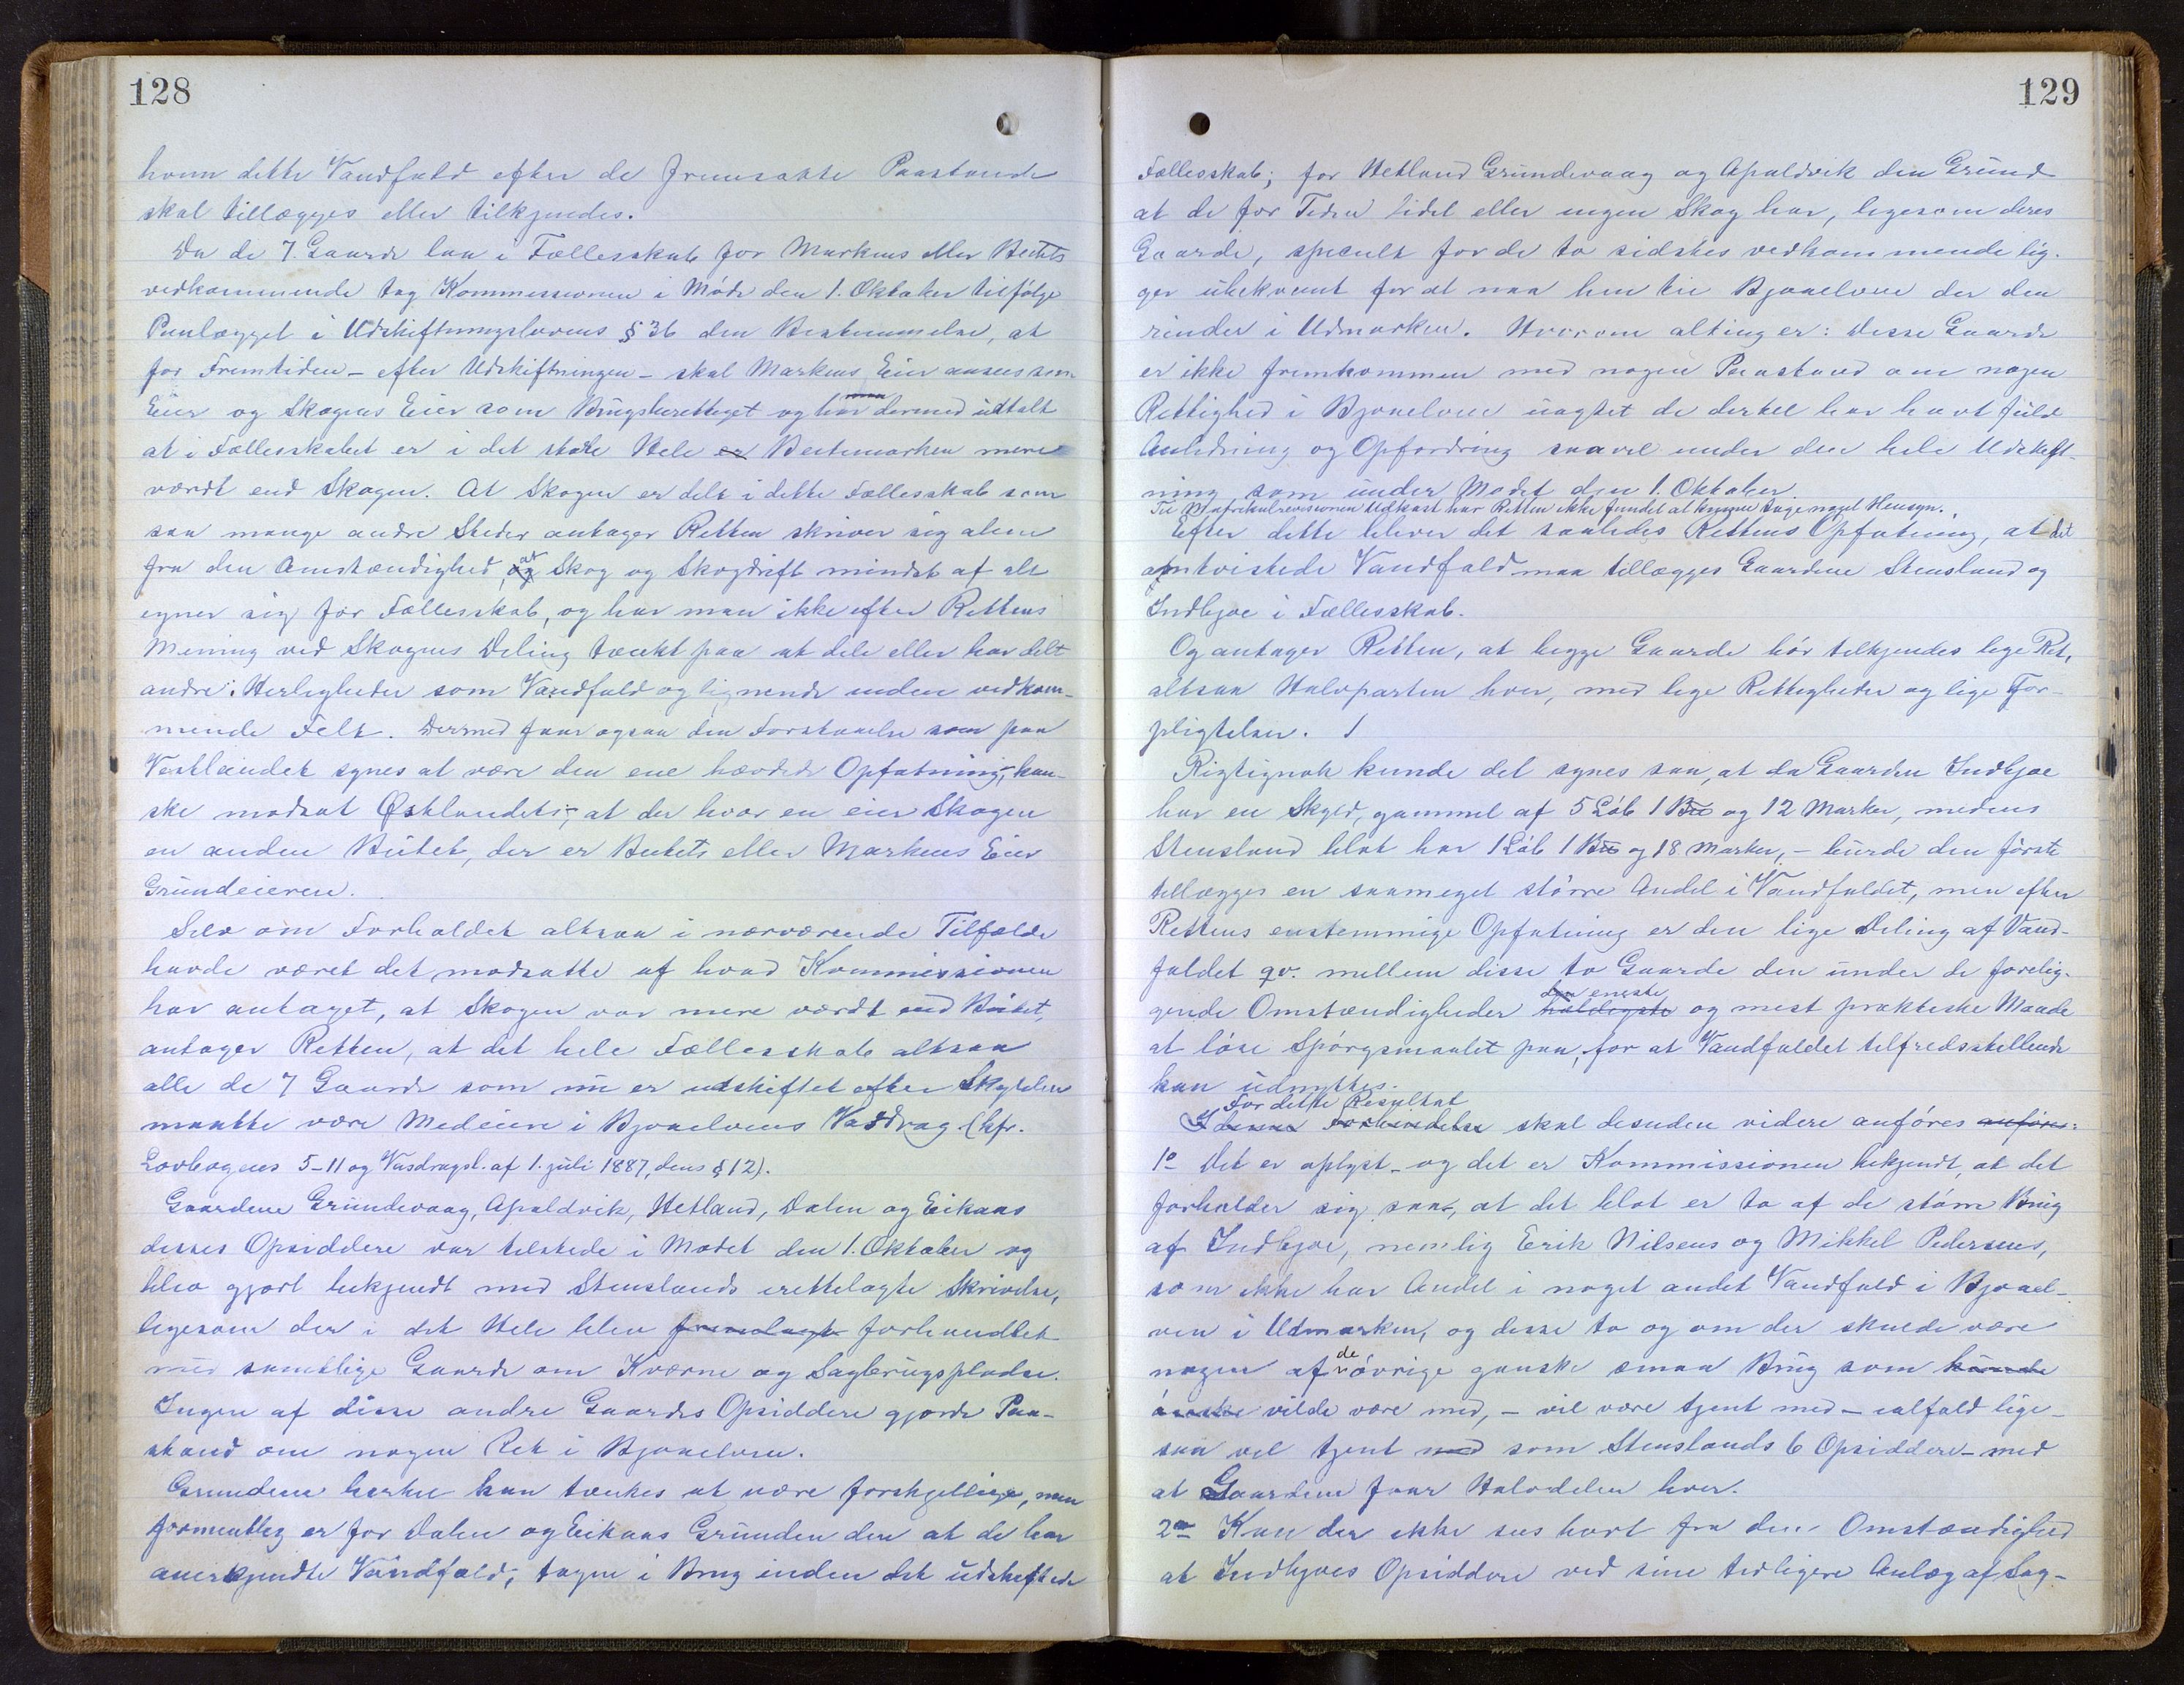 128
hvem dette Vandfald efter de fremsatte Paastande
skal tillægges eller tilkjendes.
Da de 7. Gaarde laa i Fællesskab for Markens eller Beitets
vedkommende tog Kommissionen i Møde den 1. Oktober tilfølge
Paalægget i Udskiftningslovens § 36 den Bestemmelse, at
for Fremtiden – efter Udskiftningen – skal Markens Eier ansees som
Eier og Skogens Eier som Brugsberettiget og har dermed udtalt
at i Fællesskabet er i det store Hele er Beitemarken mere
værdt end Skogen. At Skogen er delt i dette Fællesskab som
saa mange andre Steder antager Retten skriver sig alene
fra den Omstændighed, at Skog og Skogdrift mindst af alt
egner sig for Fællesskab, og har man ikke efter Rettens
Mening ved Skogens Deling tænkt paa at dele eller har delt
andre Herligheder som Vandfald og lignende inden vedkom-
mende Felt. Dermed faar ogsaa den Forstaaelse som paa
Vestlandet synes at være den ene hævdede Opfatning, kan-
ske modsat Østlandets; at der hvor en eier Skogen
en anden Beitet, der er Beitets eller Markens Eier
Grundeieren.
Selv om Forholdet altsaa i nærværende Tilfælde
havde været det modsatte af hvad Kommissionen
har antaget, at Skogen var mere værdt end Beitet,
antager Retten, at det hele Fællesskab altsaa
alle de 7 Gaarde som nu er udskiftet efter Skylden
maatte være Medeiere i Bjoaelvens Vasdrag (kfr.
Lovbogens 5–11 og Vasdragsl. af 1. juli 1887, dens § 12).
Gaardene Grundevaag, Apaldvik, Hetland, Dalen og Eikaas
desses Opsiddere var tilstede i Mødet den 1. Oktober og
blev gjort bekjendt med Stenslands irettelagte Skrivelse,
ligesom der i det Hele blev fremlagt forhandlet
med samtlige Gaarde om Kværne og Sagbrugspladse.
Ingen af disse andre Gaardes Opsiddere gjorde Paa-
stand om nogen Ret i Bjoaelven.
Grundene hertil kan tænkes at være forskjellige, men
formentlig er for Dalen og Eikaas Grunden den at de har
anerkjendte Vandfald, tagne i Brug inden det udskiftede
129
Fællesskab; for Hetland Grundevaag og Apaldvik den Grund
at de for Tiden lidet eller ingen Skog har, ligesom deres
Gaarde, specielt for de to sidstes vedkommende lig-
ger ubekvemt for at naa hen til Bjoaelven der den
rinder i Udmarken. Hvorom alting er: Desse Gaarde
er ikke fremkommen med nogen Paastand om nogen
Rettighed i Bjoaelven uagtet de dertil har havt fuld
Anledning og Opfordring saavel under den hele Udskift-
ning som under Mødet den 1. Oktober.
Til Matrikulrevisionen Udkast har Retten ikke fundet at kunne tage noget Hensyn.
Efter dette bliver det saaledes Rettens Opfatning, at det
omtvistede Vandfald maa tillægges Gaardene Stensland og
Indbjoe i Fællesskab.
Og antager Retten, at begge Gaarde bör tilkjendes lige Ret,
altsaa Halvparten hver, med lige Rettigheder og lige For-
pligtelser.
Rigtignok kunde det synes saa, at da Gaarden Indbjoe
har en Skyld, gammel af 5 Löb 1 Bu og 12 Marker, medens
Stensland blot har 1 Löb 1 Bu og 18 Marker, – burde den förste
tillægges en saameget större Andel i Vandfaldet, men efter
Rettens enstemmige Opfatning er den lige Deling af Vand-
faldet qv. mellem disse to Gaarde den under de forelig-
gende Omstændigheder den eneste heldigste og mest praktiske Maade
at löse Spörgsmaalet paa, for at Vandfaldet tilfredsstillende
kan udnyttes.
For dette Resultat
I denne Forbindelse skal desuden videre anföres anföres:
1º Det er oplyst – og det er Kommissionen bekjendt, at det
forholder sig saa, at det blot er to af de störe Brug
af Indbjoe, nemlig Erik Nilsens og Mikkel Pedersens,
som ikke har Andel i noget andet Vandfald i Bjoael-
ven i Udmarken, og desse to og om der skulde være
nogen af de övrige ganske smaa Brug som kunde
önske vilde være med, – vil være tjent med – ialfald lige-
saa vel tjent med som Stenslands 6 Opsiddere – med
at Gaardene faar Halvdelen hver.
2º Kan der ikke sees bort fra den Omstændighed
at Indbjoes Opsiddere ved sine tidligere Anlæg af Sag-